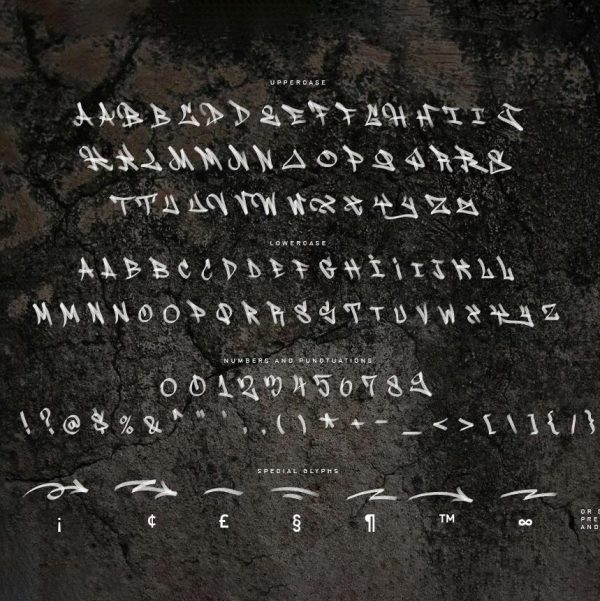 UPPERCASE
A A B B C D D E E F F G H H I I J
K K L M M N N O O P Q Q R R S
T T U U V V W W X X Y Y Z Z
LOWERCASE
A A B B C C D D E F G H I I I J K L L
M M N N O O P Q R R S T T U V W X X Y Z
NUMBERS AND PUNCTUATIONS
0 0 1 2 3 4 5 6 7 8 9
! ? @ $ % & ^ " ' , . ( ) * + - _ < > [ \ ] { / }
SPECIAL GLYPHS
¡ ¢ £ § ¶ ™ ∞
OR
PRE
AND